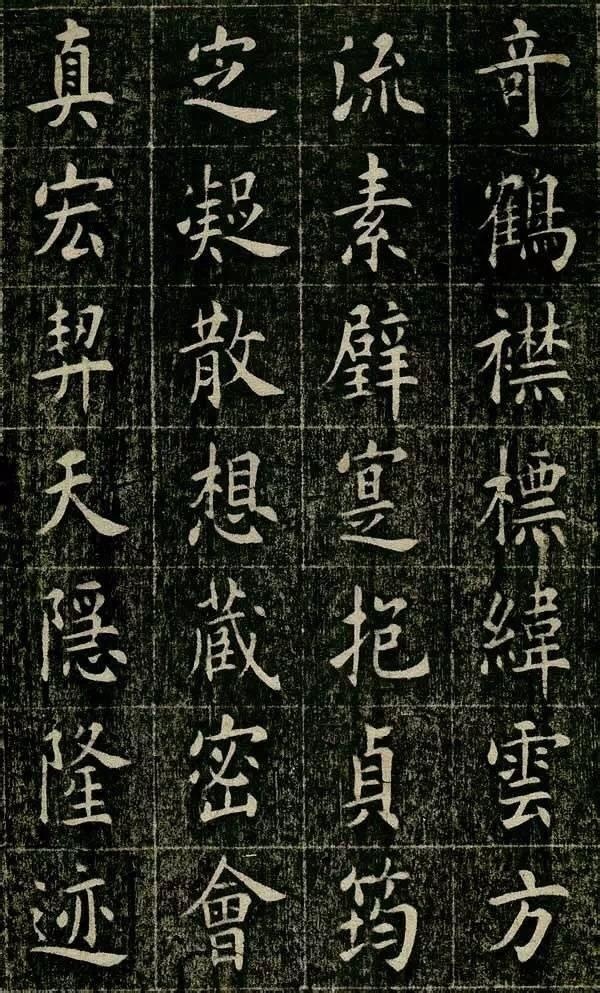 奇鶴襟標緯雲方
流素壁寔抱貞筠
定凝散想藏密會
真宏契天隱隆迹